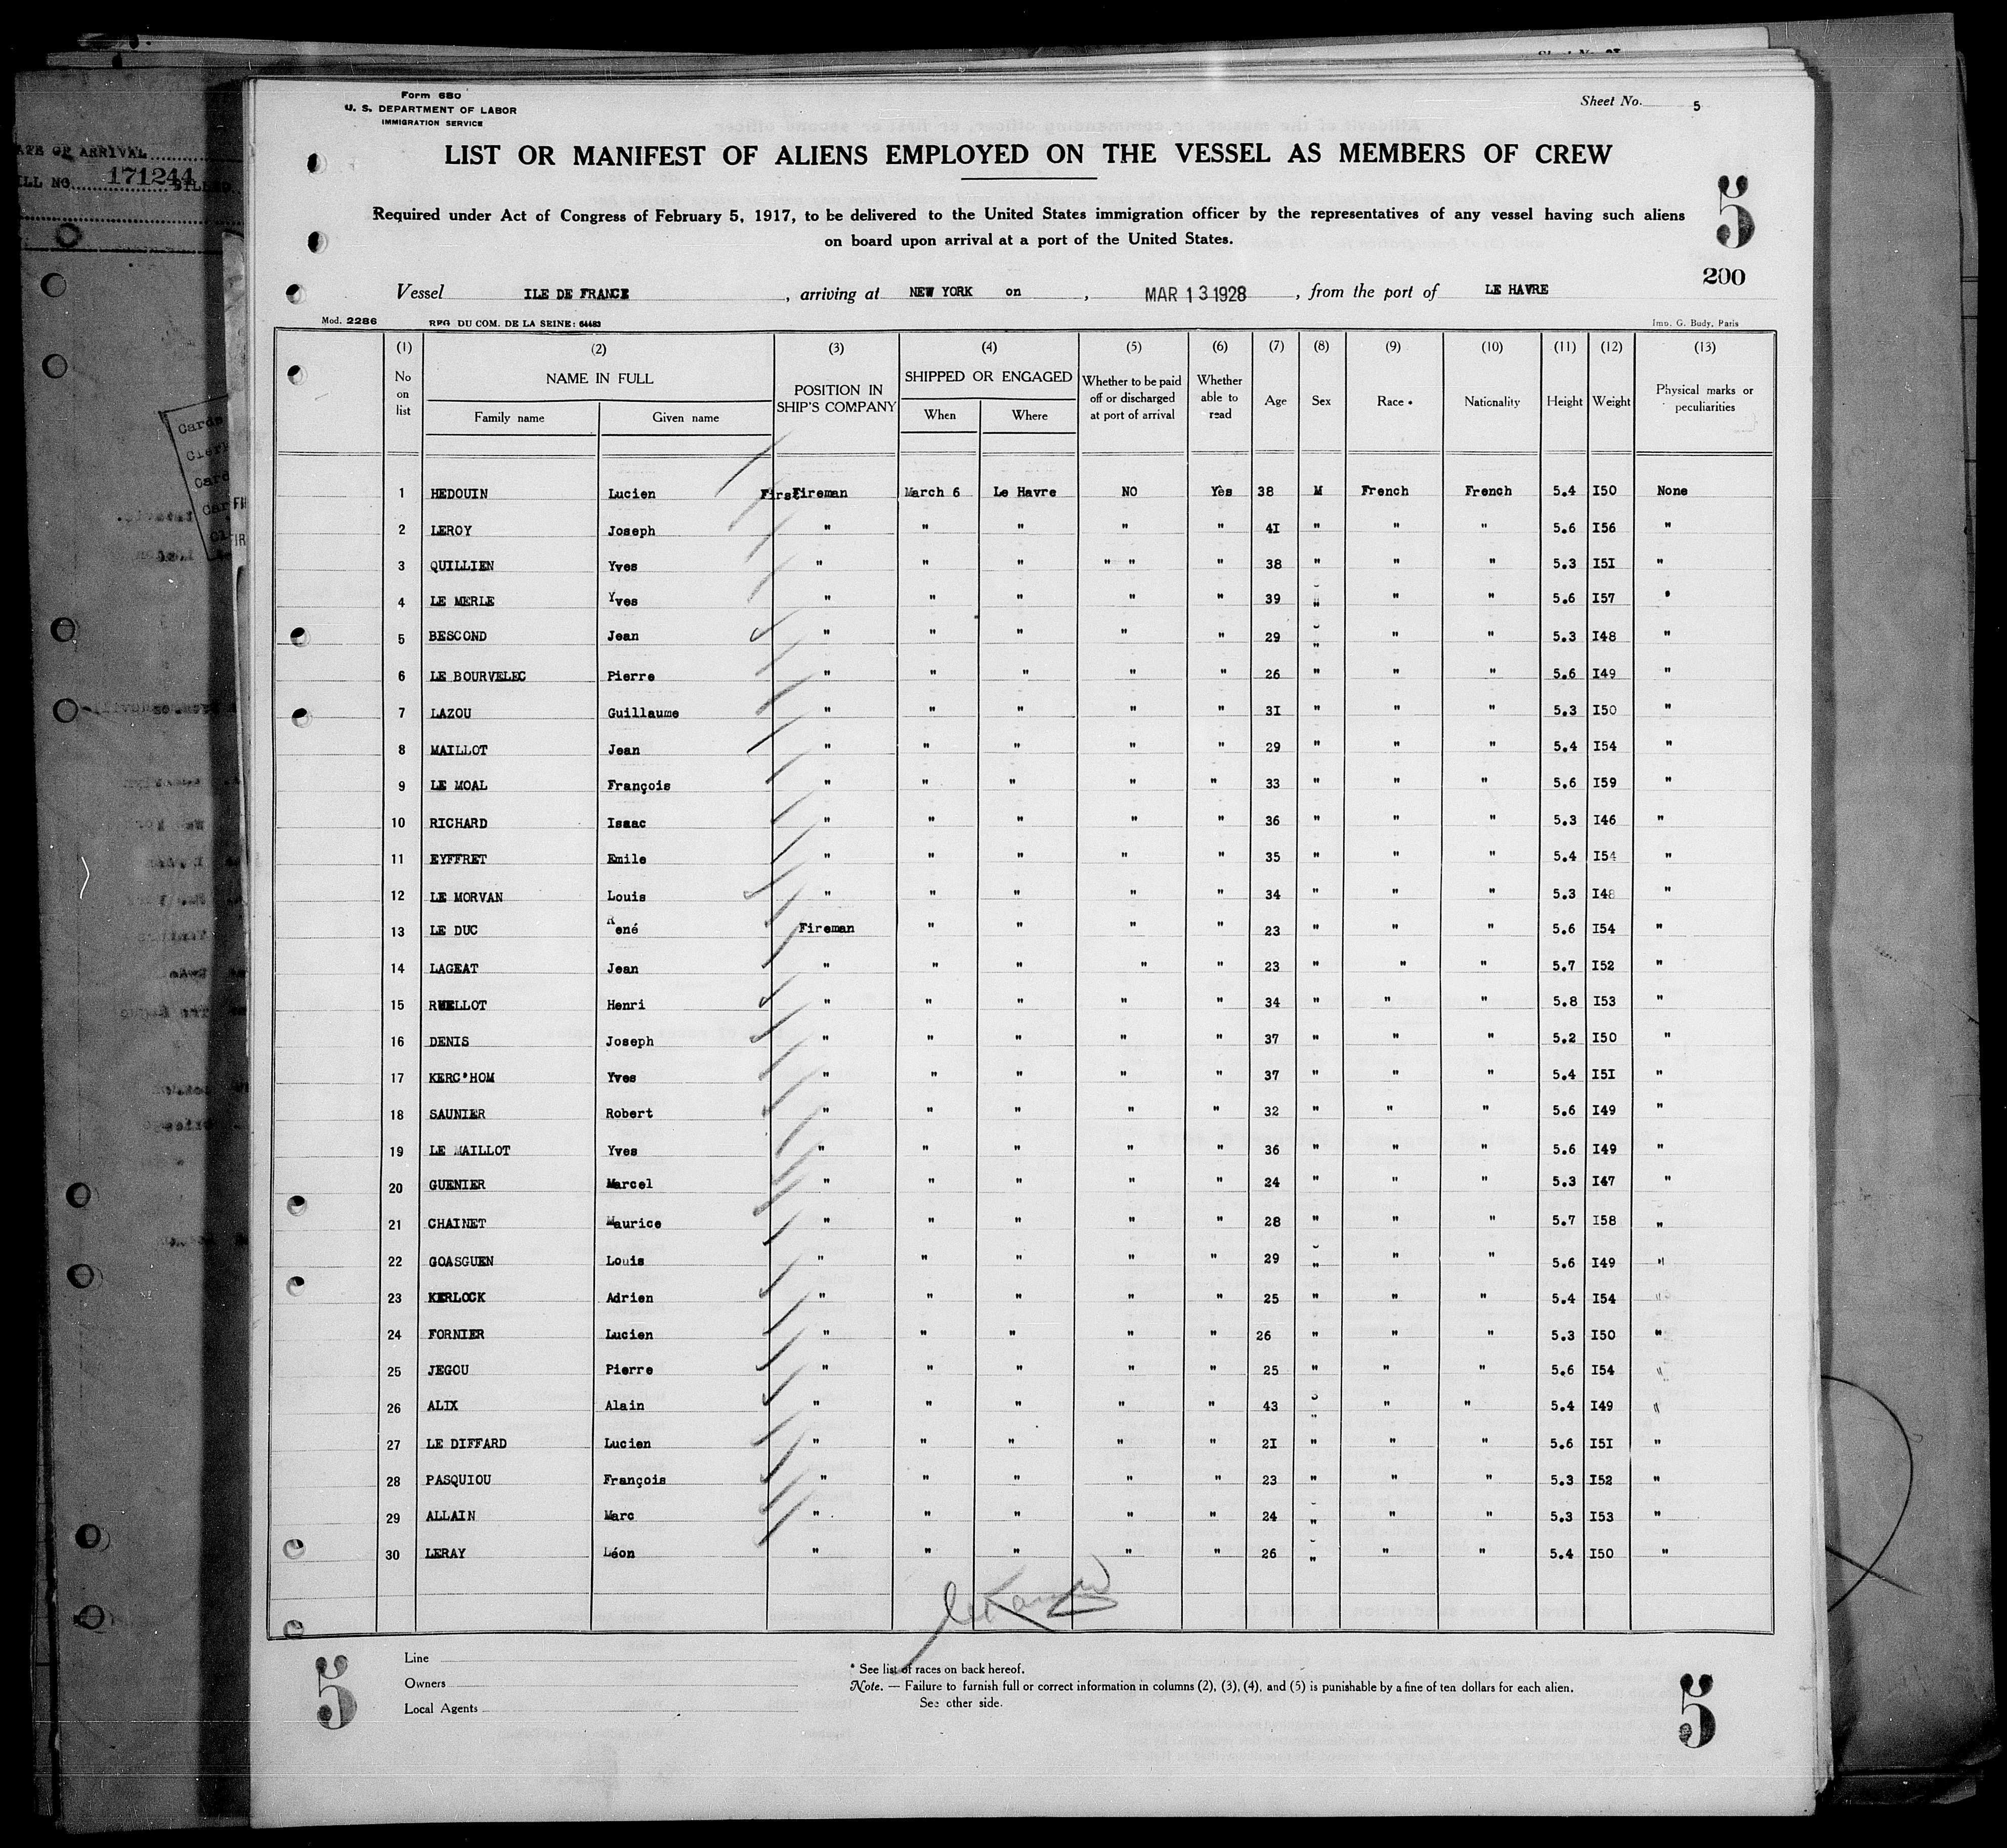 Form 680
U. S. DEPARTMENT OF LABOR
IMMIGRATION SERVICE
Sheet No. 5
LIST OR MANIFEST OF ALIENS EMPLOYED ON THE VESSEL AS MEMBERS OF CREW
Required under Act of Congress of February 5, 1917, to be delivered to the United States immigration officer by the representatives of any vessel having such aliens
on board upon arrival at a port of the United States.
5
200
Vessel ILE DE FRANCE, arriving at NEW YORK on, MAR 13 1928, from the port of LE HAVRE
Mod. 2286 REG DU COM. DE LA SEINE: 64483 Imp. G. Budy, Paris
(1) (2) (3) (4) (5) (6) (7) (8) (9) (10) (11) (12) (13)
No on list NAME IN FULL Family name Given name POSITION IN SHIP'S COMPANY SHIPPED OR ENGAGED When Where Whether to be paid off or discharged at port of arrival Whether able to read Age Sex Race * Nationality Height Weight Physical marks or peculiarities
1 HEDOUIN Lucien First Fireman March 6 Le Havre NO Yes 38 M French French 5.4 I50 None
2 LEROY Joseph " " " " " 4I " " " 5.6 I56 "
3 QUILLIEN Yves " " " " " " 38 " " " 5.3 I5I "
4 LE MERLE Yves " " " " " 39 " " " 5.6 I57 "
5 BESCOND Jean " " " " " 29 " " " 5.3 I48 "
6 LE BOURVELEC Pierre " " " " " 26 " " " 5.6 I49 "
7 LAZOU Guillaume " " " " " 3I " " " 5.3 I50 "
8 MAILLOT Jean " " " " " 29 " " " 5.4 I54 "
9 LE MOAL François " " " " " 33 " " " 5.6 I59 "
10 RICHARD Isaac " " " " " 36 " " " 5.3 I46 "
11 EYFFRET Emile " " " " " 35 " " " 5.4 I54 "
12 LE MORVAN Louis " " " " " 34 " " " 5.3 I48 "
13 LE DUC René Fireman " " " " 23 " " " 5.6 I54 "
14 LAGEAT Jean " " " " " 23 " " " 5.7 I52 "
15 RUELLOT Henri " " " " " 34 " " " 5.8 I53 "
16 DENIS Joseph " " " " " 37 " " " 5.2 I50 "
17 KERC'HOM Yves " " " " " 37 " " " 5.4 I5I "
18 SAUNIER Robert " " " " " 32 " " " 5.6 I49 "
19 LE MAILLOT Yves " " " " " 36 " " " 5.6 I49 "
20 GUENIER Marcel " " " " " 24 " " " 5.3 I47 "
21 CHAINET Maurice " " " " " 28 " " " 5.7 I58 "
22 GOASGUEN Louis " " " " " 29 " " " 5.6 I49 "
23 KERLOCK Adrien " " " " " 25 " " " 5.4 I54 "
24 FORNIER Lucien " " " " " 26 " " " 5.3 I50 "
25 JEGOU Pierre " " " " " 25 " " " 5.6 I54 "
26 ALIX Alain " " " " " 43 " " " 5.4 I49 "
27 LE DIFFARD Lucien " " " " " 2I " " " 5.6 I5I "
28 PASQUIOU François " " " " " 23 " " " 5.3 I52 "
29 ALLAIN Marc " " " " " 24 " " " 5.3 I53 "
30 LERAY Léon " " " " " 26 " " " 5.4 I50 "
Line
Owners
Local Agents
* See list of races on back hereof.
Note. — Failure to furnish full or correct information in columns (2), (3), (4), and (5) is punishable by a fine of ten dollars for each alien.
See other side.
5
5
ARRIVAL
171244